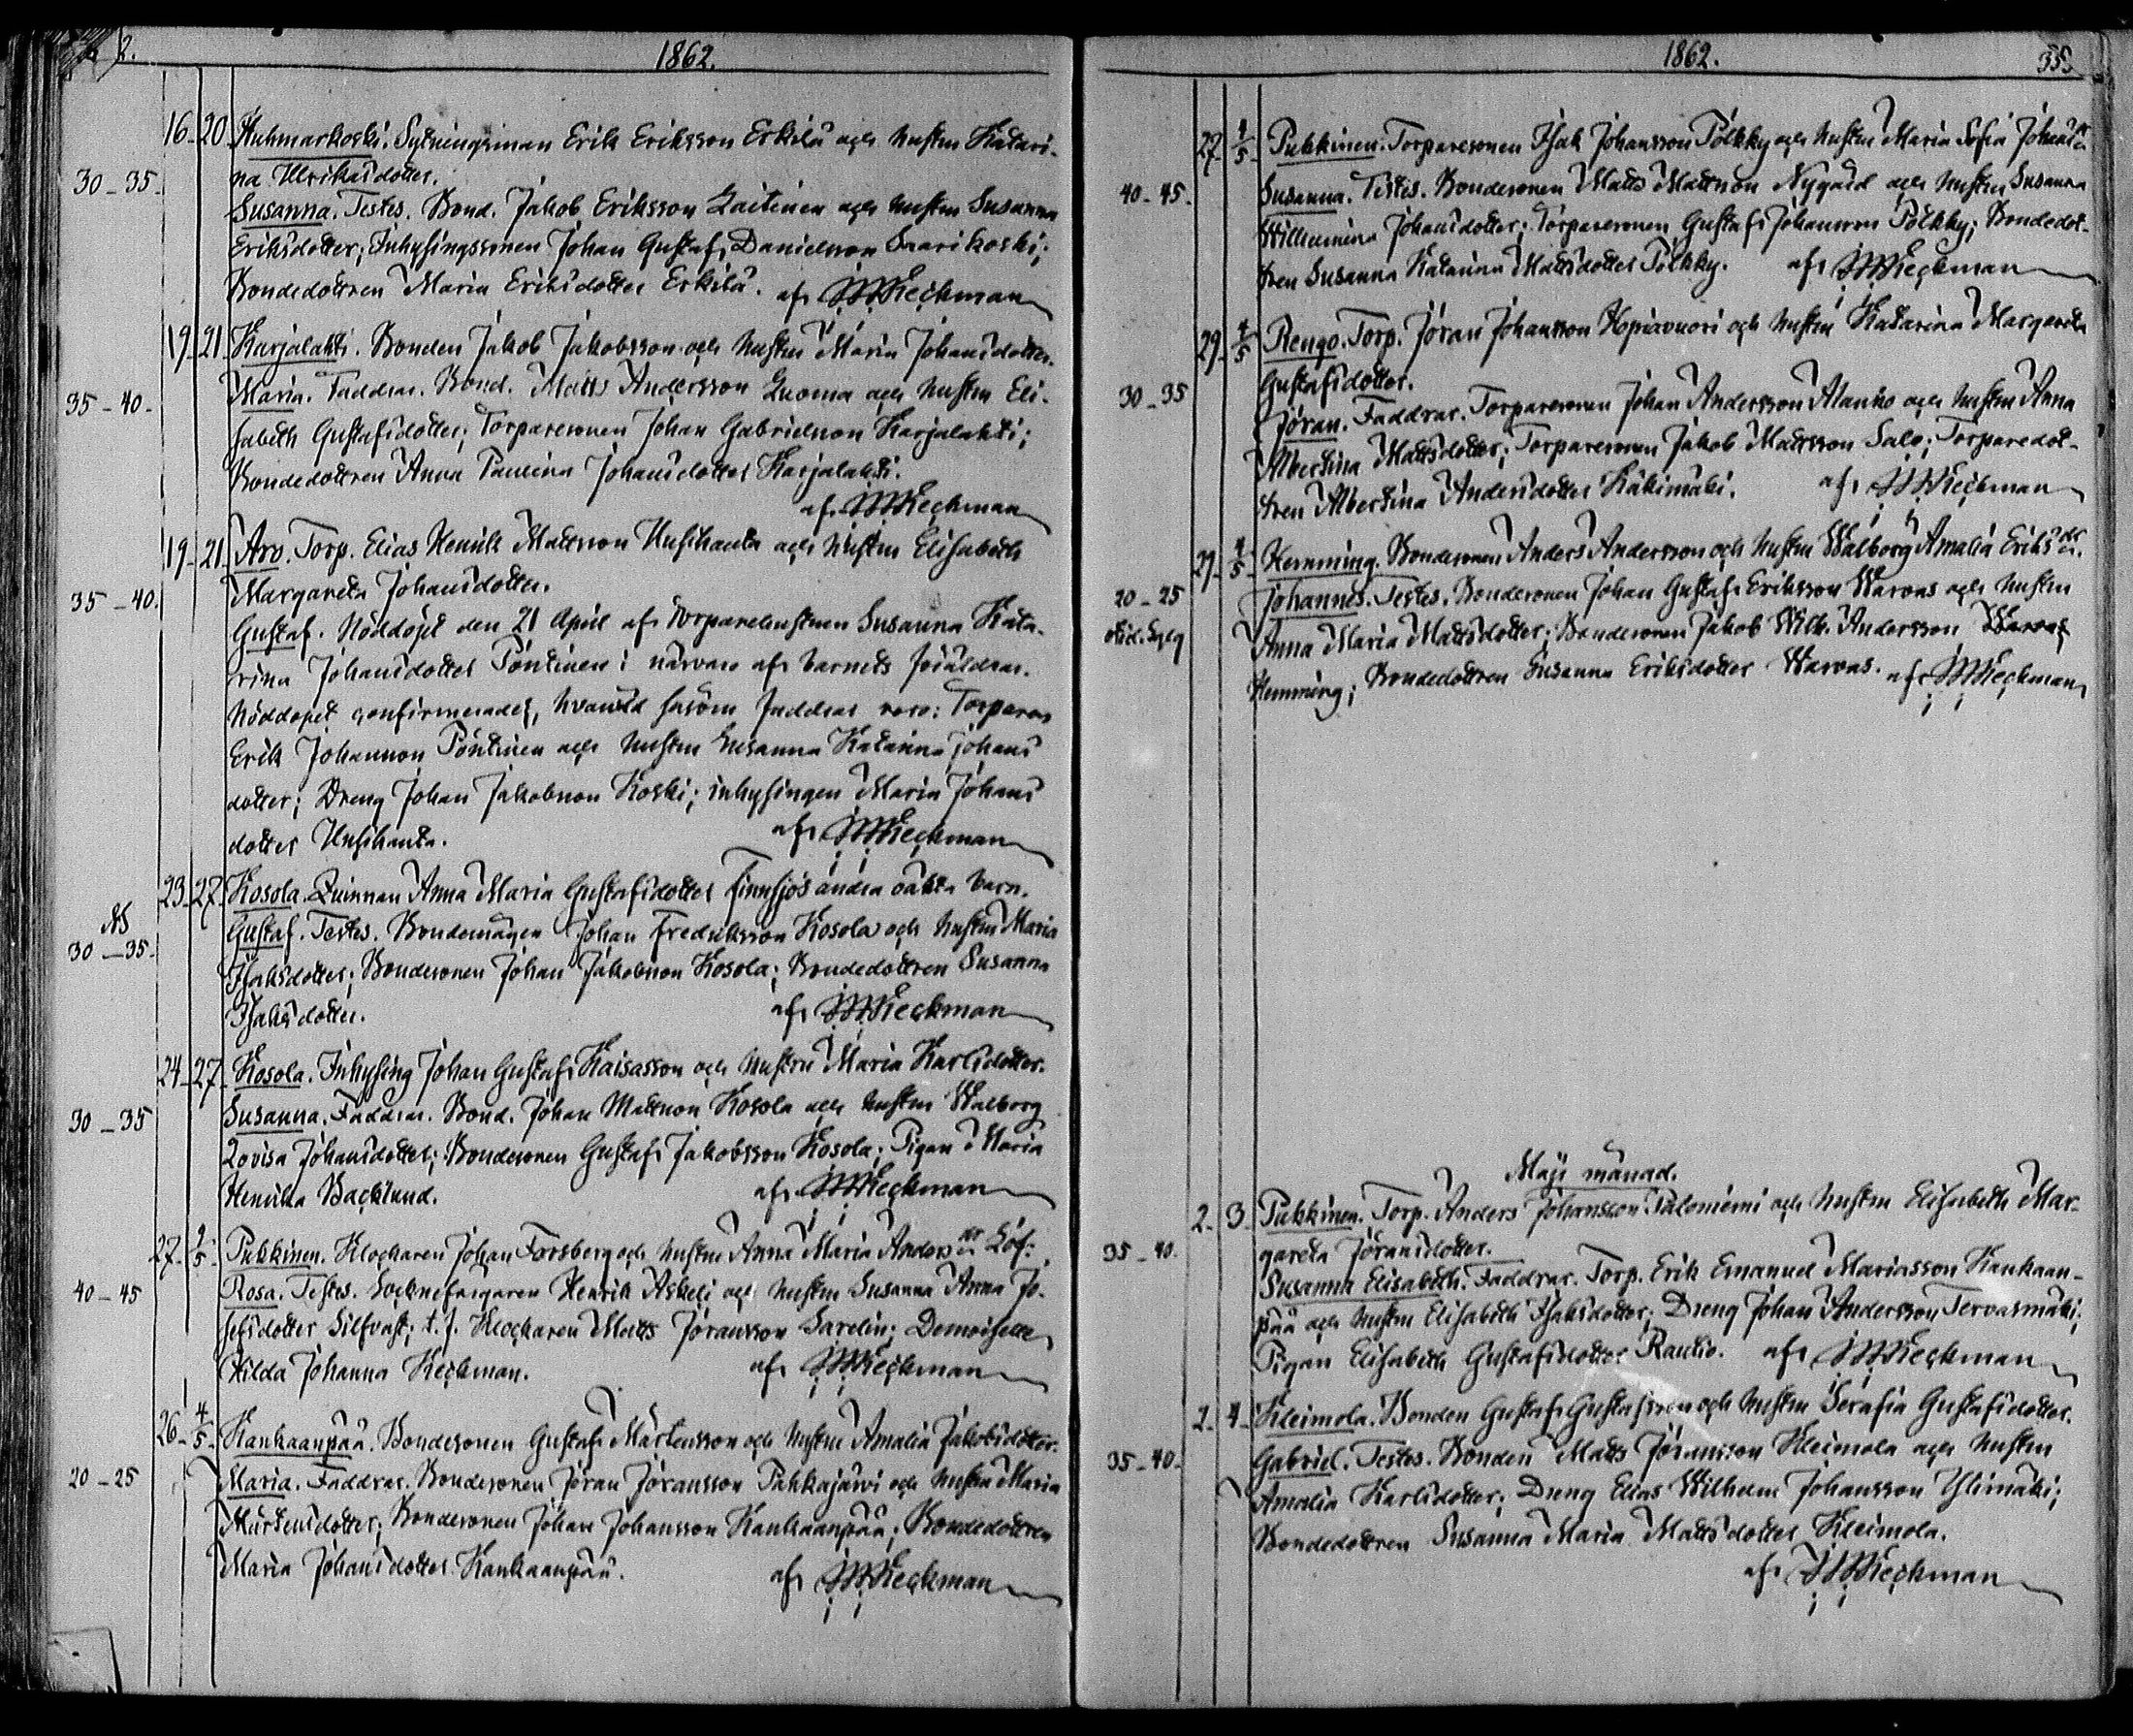 2.
1862.
16 20 Kuhmarkoski. Sytningsman Erik Eriksson Erkilä och hustru Katari-
30-35. na Ulriksdotter.
Susanna. Testes. Bond. Jakob Eriksson Laitinen och hustru Susanna
Eriksdotter; Inhysingssonen Johan Gustaf Danielsson Saarikoski;
Bondedottren Maria Eriksdotter Erkilä. af Heckman
19 21 Karjalahti. Bonden Jakob Jakobsson och hustru Maria Johansdotter.
35-40. Maria. Faddrar. Bond. Matts Andersson Luoma och hustru Eli-
sabeth Gustafsdotter; Torparesonen Johan Gabrielsson Karjalahti;
Bondedottren Anna Paulina Johansdotter Karjalahti.
af Heckman
19 21 Aro. Torp. Elias Henrik Mattsson Uusihauta och hustru Elisabeth
35-40. Margareta Johansdotter.
Gustaf. Nöddöpt den 21 April af Torparehustrun Susanna Kata-
rina Johansdotter Pöntinen i närvaro af barnets föräldrar.
Nöddopet confirmerades, hvarvid såsom faddrar voro: Torparen
Erik Johansson Pöntinen och hustru Susanna Katarina Johans
dotter; Dreng Johan Jakobsson Koski; inhysingen Maria Johans
dotter Uusihauta. af Heckman
23 27 Kosola. Quinnan Anna Maria Gustafsdotter Finnsjös andra oäkta barn.
30-35. Gustaf. Testes. Bondemågen Johan Fredriksson Kosola och hustru Maria
Isaksdotter; Bondesonen Johan Jakobsson Kosola; Bondedottren Susanna
Isaksdotter. af Heckman
24 27 Kosola. Inhysing Johan Gustaf Kaisasson och hustru Maria Karlsdotter.
30-35 Susanna. Faddrar. Bond. Johan Mattsson Kosola och hustru Walborg
Lovisa Johansdotter; Bondesonen Gustaf Jakobsson Kosola; Pigan Maria
Henrika Backlund. af Heckman
27 2/5 Pukkinen. Klockaren Johan Forsberg och hustru Anna Maria Anders dr Löf.
40-45 Rosa. Testes. Socknefärgaren Henrik Askeli och hustru Susanna Anna Jo-
sefsdotter Silfvast; t.f. Klockaren Matts Jöransson Sarelin; Demoiselle
Hilda Johanna Heckman. af Heckman
26 4/5 Kankaanpää. Bondesonen Gustaf Mårtensson och hustru Amalia Jakobsdotter.
20-25 Maria. Faddrar. Bondesonen Jöran Jöransson Pahkajärvi och hustru Maria
Mårtensdotter; Bondesonen Johan Johansson Kankaanpää; Bondedottren
Maria Johansdotter Kankaanpää. af Heckman
1862. 355
27 4/5 Pukkinen. Torparesonen Isak Johansson Pölkky och hustru Maria Sofia Johans dr.
40-45. Susanna. Testes. Bondesonen Matts Mattsson Nygård och hustru Susanna
Willemina Johansdotter; Torparesonen Gustaf Johansson Pölkky; Bondedot-
tren Susanna Katarina Mattsdotter Pölkky. af Heckman
29 4/5 Rengo. Torp. Jöran Johansson Kopiavuori och hustru Katarina Margareta
30-35 Gustafsdotter.
Jöran. Faddrar. Torparesonen Johan Andersson Alanko och hustru Anna
Albertina Mattsdotter; Torparesonen Jakob Mattsson Salo; Torparedot-
tren Albertina Andersdotter Käkimäki. af Heckman
29 4/5 Hemming. Bondesonen Anders Andersson och hustru Walborg Amalia Eriks dr.
20-25 Johannes. Testes. Bondesonen Johan Gustaf Eriksson Warvas och hustru
Anna Maria Mattsdotter; Bondesonen Jakob Wilh. Andersson Warvas
Hemming; Bondedottren Susanna Eriksdotter Warvas. af Heckman
Maji månad.
2 3 Pukkinen. Torp. Anders Johansson Palomäki och hustru Elisabeth Mar-
35-40. gareta Jöransdotter.
Susanna Elisabeth. Faddrar. Torp. Erik Emanuel Mariasson Kankaan-
pää och hustru Elisabeth Isaksdotter; Dreng Johan Andersson Tervasmäki;
Pigan Elisabeth Gustafsdotter Rautio. af Heckman
2 4 Kleimola. Bonden Gustaf Gustafsson och hustru Serafia Gustafsdotter.
35-40. Gabriel. Testes. Bonden Matts Jöransson Kleimola och hustru
Amalia Karlsdotter; Dreng Elias Wilhelm Johansson Ylimäki;
Bondedottren Susanna Maria Mattsdotter Kleimola.
af Heckman